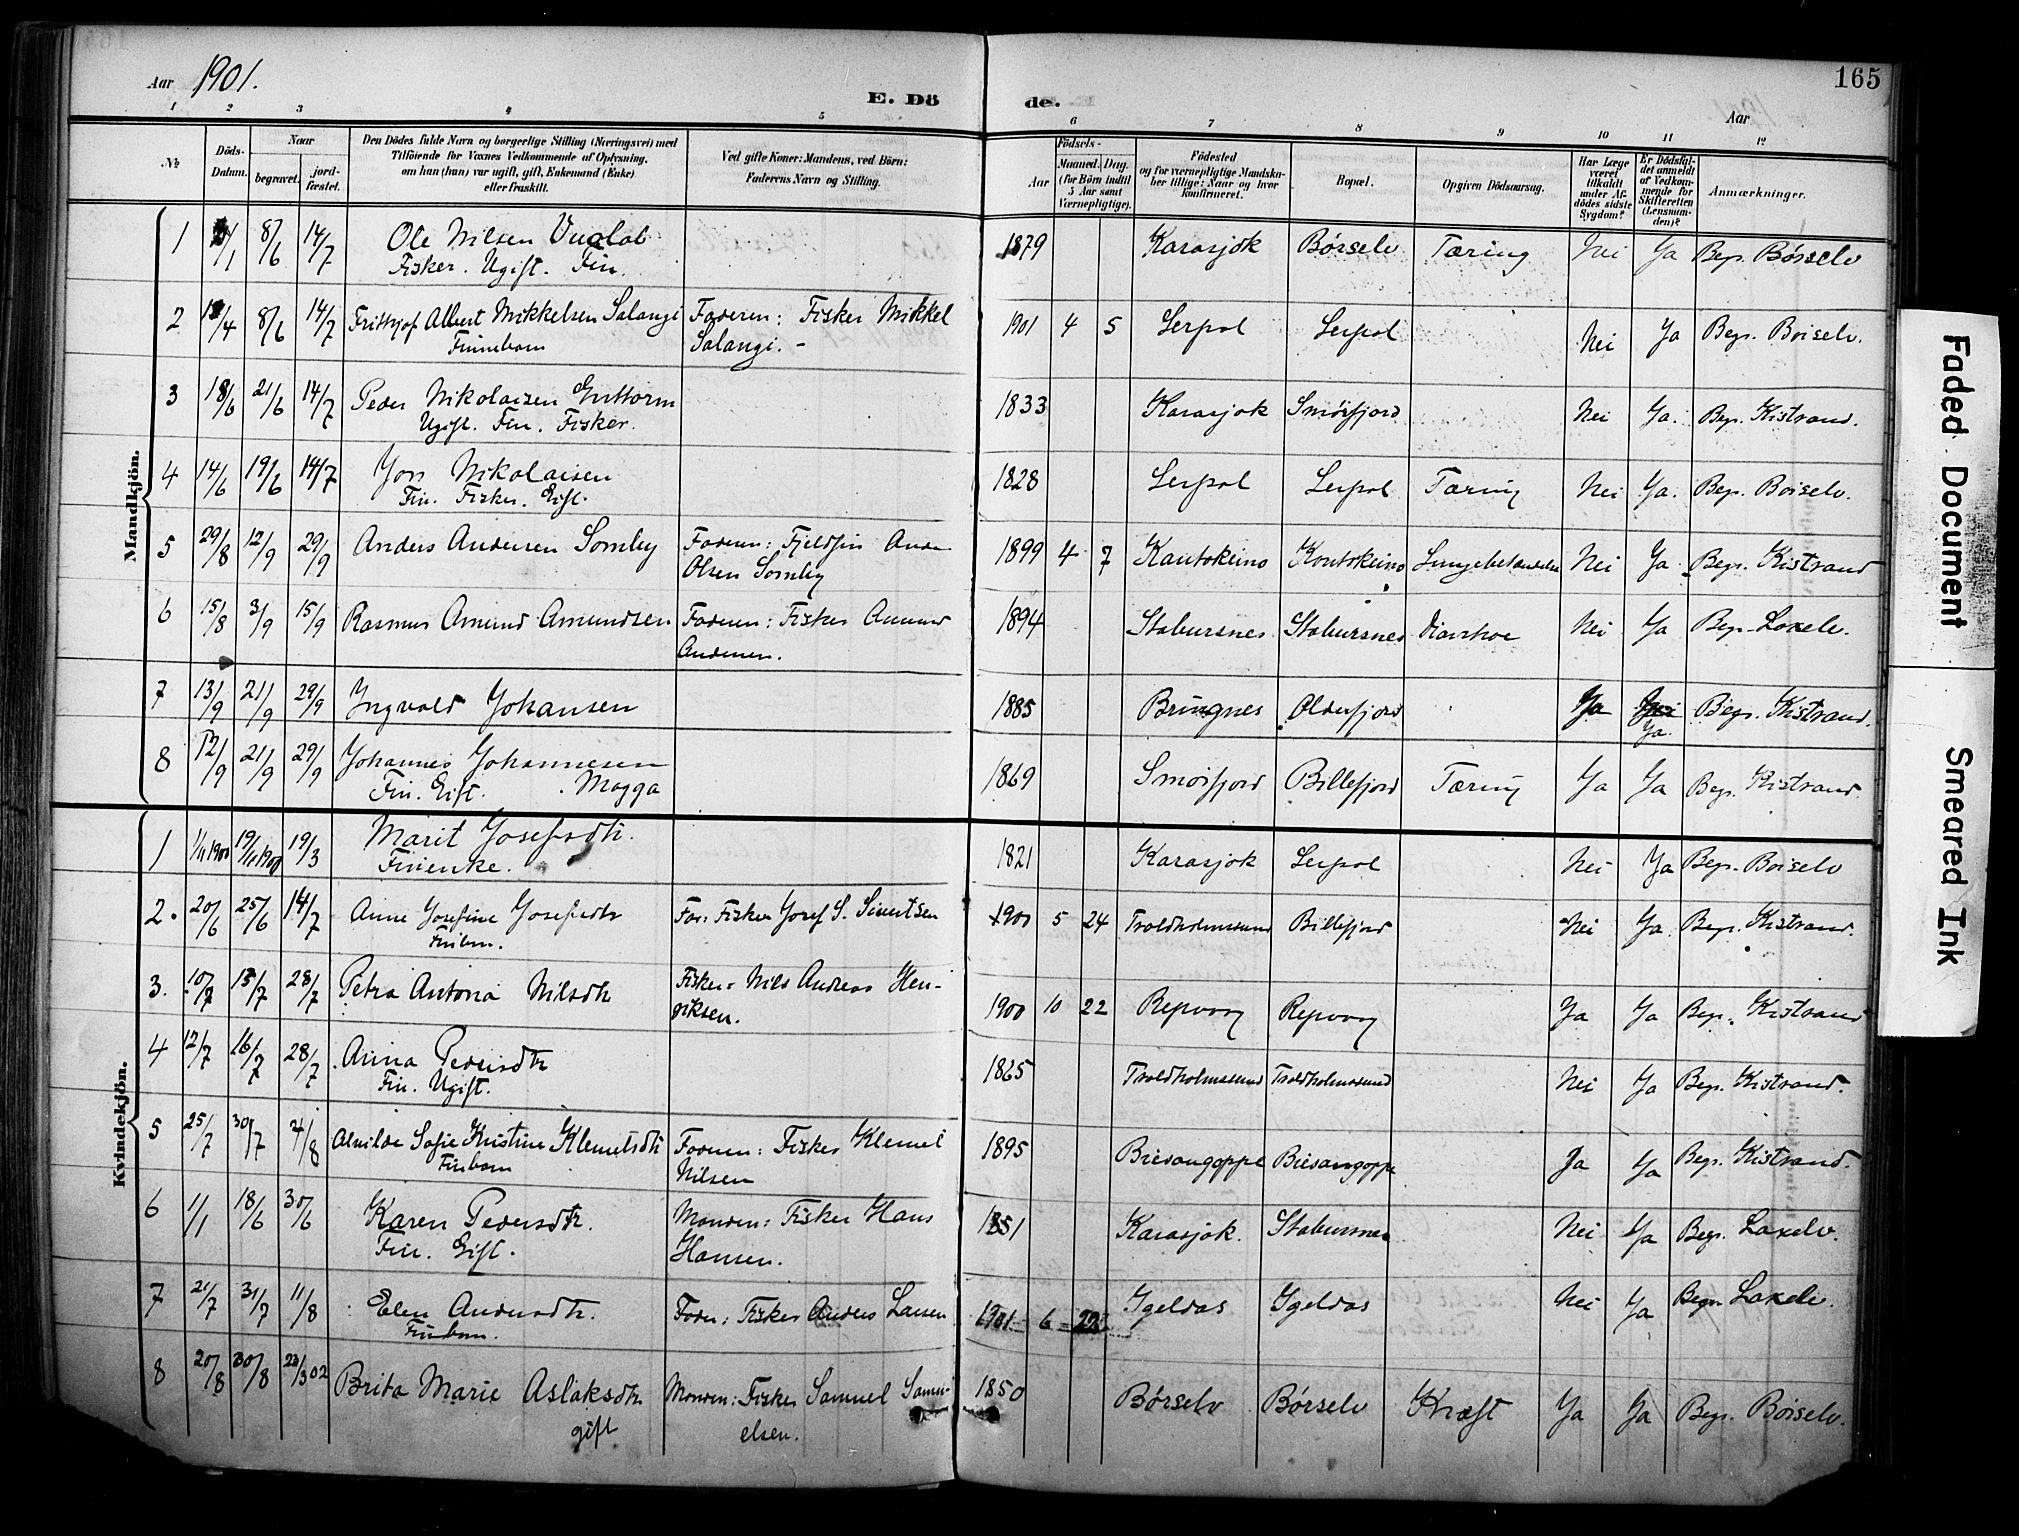 Aar 1901.
E. Dö de.
165
Aar
1 2 3 4 5 6 7 8 9 10 11 12
№
Döds-Datum.
Naar
begravet.
jord-fæstet.
Den Dödes fulde Navn og borgerlige Stilling (Næringsvei) med
Tilföiende for Voxnes Vedkommende af Oplysning,
om han (hun) var ugift, gift, Enkemand (Enke)
eller fraskilt.
Ved gifte Koner: Mandens, ved Börn:
Faderens Navn og Stilling.
Födsels-
Aar
Maaned. Dag.
(for Börn indtil
5 Aar samt
Værnepligtige).
Födested
og for værnepligtige Mandska-
ber tillige: Naar og hvor
konfirmeret.
Bopæl.
Opgiven Dödsaarsag.
Har Læge
været
tilkaldt
under Af-
dödes sidste
Sygdom?
Er Dödsfal-
det anmeldt
af Vedkom-
mende for
Skifteretten
(Lensman-
den)?
Anmærkninger.
Mandkjön.
1 8/6 14/7 Ole Nilsen 1879 Karasjok Børselv Tæring Nei Ja Begr. Børselv
Fisker. Ugift. Fin.
2 8/6 14/7 Frithjof Albert Mikkelsen Salangi Faderen: Fisker Mikkel 1901 4 5 Lerpol Lerpol Nei Ja Begr. Børselv.
Finnebarn Salangi. -
3 18/6 21/6 14/7 Peder Nikolaisen Guttorm 1833 Karasjok Smørfjord Nei Ja. Begr. Kistrand.
Ugift. Fin. Fisker.
4 14/6 19/6 14/7 Jon Nikolaisen 1828 Lerpol Lerpol Tæring Nei Ja. Begr. Børselv.
Fin. Fisker. Gift.
5 29/8 12/9 29/9 Anders Andersen Somby Faderen: Fjeldfin Anders 1899 4 7 Kautokeino Kautokeino Lungebetændelse Nei Ja Begr. Kistrand
Olsen Somby
6 15/8 3/9 15/9 Rasmus Amund Amundsen Faderen: Fisker Amund 1894 Stabursnes Stabursnes Diarrhoe Nei Ja Begr. Laxelv.
Andersen.
7 13/9 21/9 29/9 Ingvald Johansen 1885 Bringnes Olderfjord Ja Ja. Begr. Kistrand.
8 12/9 21/9 29/9 Johannes Johannesen 1869 Smørfjord Billefjord Tæring Ja Ja Begr. Kistrand.
Fin. Gift. Magga
Kvindekjön.
1 1/11 1900 19/11 1900 19/3 Marit Josefsdtr. 1821 Karasjok Lerpol Nei Ja Begr. Børselv
Finenke.
2. 20/6 25/6 14/7 Anne Josefine Josefsdtr Far: Fisker Josef S. Sivertsen 1900 5 24 Troldholmssund Billefjord Nei Ja. Begr. Kistrand.
Finbarn.
3. 10/7 15/7 28/7 Petra Antona Nilsdtr Fisker Nils Andreas Hen- 1900 10 22 Repvaag Repvaag Ja Ja Begr. Kistrand
riksen.
4 12/7 16/7 28/7 Anna Pedersdtr 1865 Troldholmssund Troldholmssund Nei Ja Begr. Kistrand.
Fin. Ugift.
5 25/7 30/7 4/8 Alvilde Sofie Kristine Klemetsdtr Faderen: Fisker Klemet 1895 Bresangoppe Ja Ja Begr. Kistrand.
Finbarn Nilsen
6 1/1 18/6 30/6 Karen Pedersdtr. Manden: Fisker Hans 1851 Karasjok. Stabursnes Nei Ja Begr. Laxelv.
Fin. Gift. Hansen.
7 21/7 31/7 11/8 Elen Andersdtr. Fader: Fisker Anders Larsen 1901 6 22 Igeldas Igeldas Nei Ja Begr. Laxelv.
Finbarn.
8 20/8 30/8 23/3 02 Brita Marie Aslaksdtr Manden: Fisker Samuel Samu- 1850 Børselv Børselv Kræft Ja Ja Begr. Børselv.
gift elsen.
Faded Document
Smeared Ink